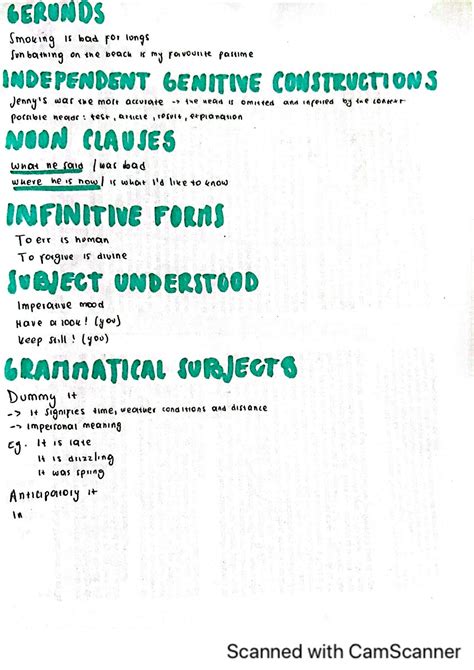 GERUNDS
Smoking is bad for longs
Sunbathing on the beach is my favourite pastime
INDEPENDENT GENITIVE CONSTRUCTIONS
Jenny's was the most accurate -> the head is omitted and inferred by the context
possible heads: test, article, result, explanation
NOUN CLAUSES
what he said / was bad
where he is now / is what I'd like to know
INFINITIVE FORMS
To err is human
To forgive is divine
SUBJECT UNDERSTOOD
Imperative mood
Have a look! (you)
Keep still! (you)
GRAMMATICAL SUBJECTS
Dummy it
-> it signifies time, weather conditions and distance
-> impersonal meaning
eg. It is late
It is drizzling
It was spring
Anticipatory it
In
Scanned with CamScanner